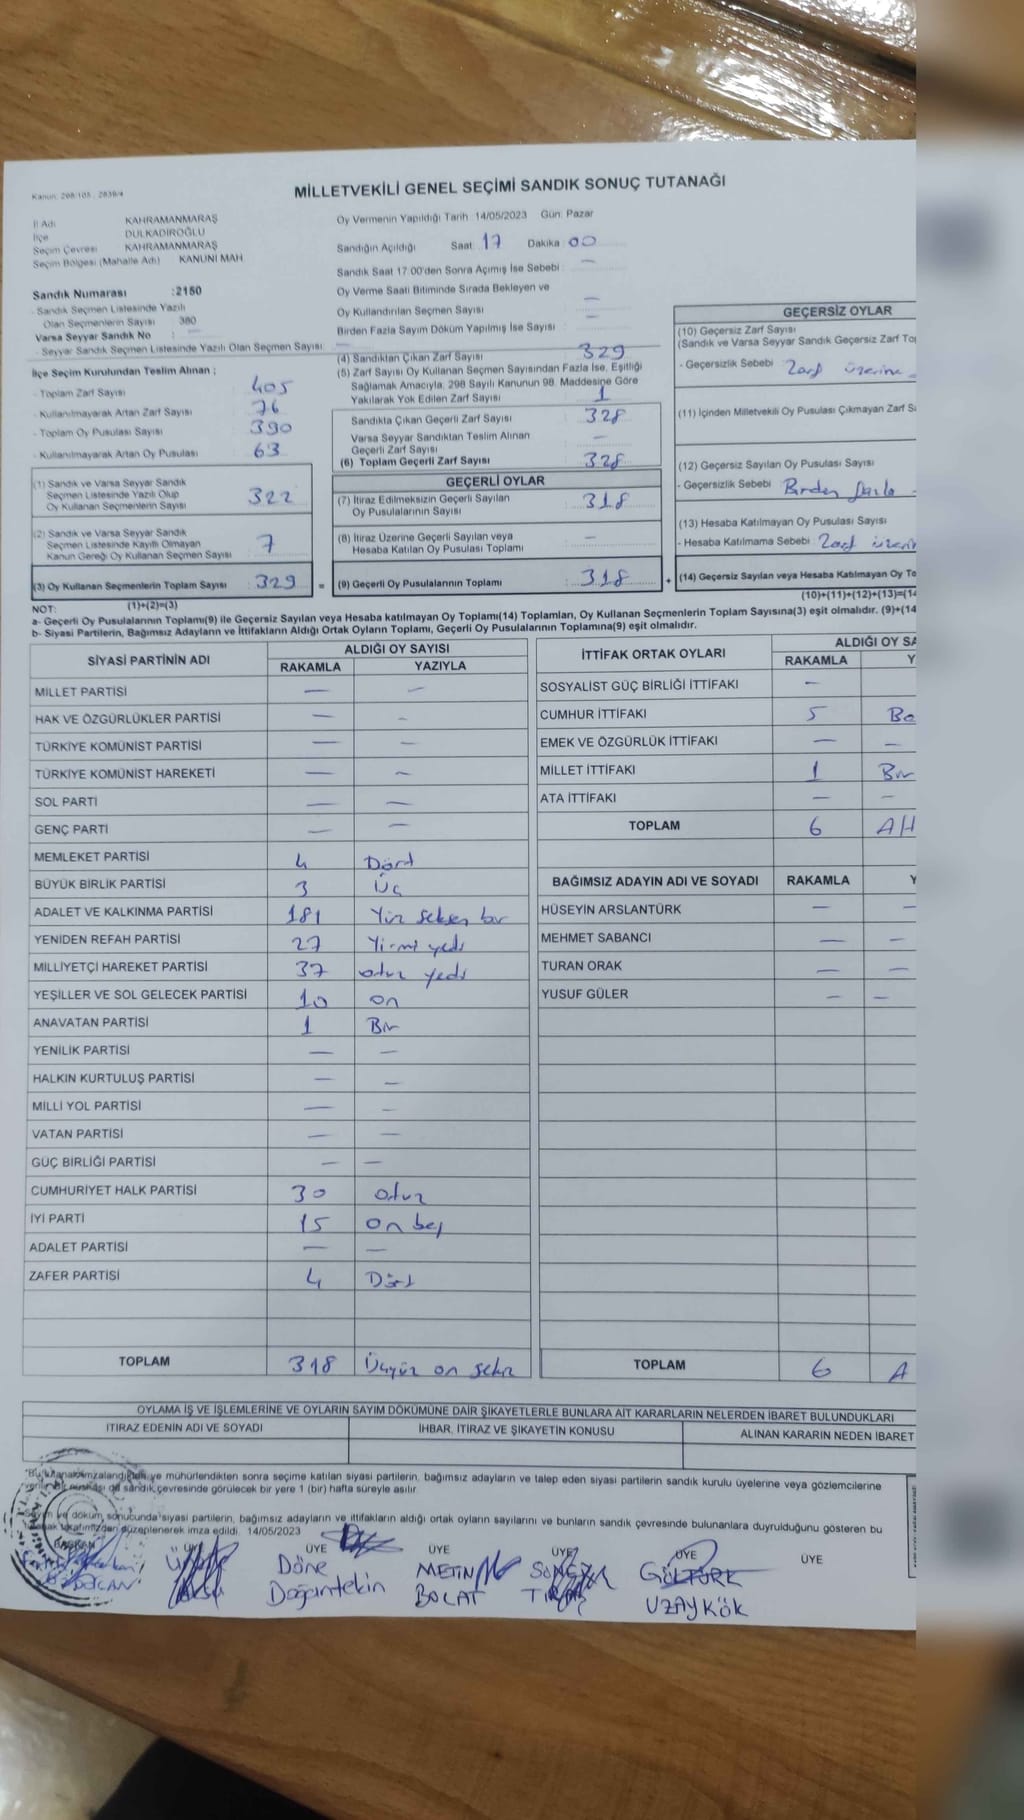 Kanun: 298/105 , 2839/4
MİLLETVEKİLİ GENEL SEÇİMİ SANDIK SONUÇ TUTANAĞI
İl Adı KAHRAMANMARAŞ
İlçe DULKADİROĞLU
Seçim Çevresi KAHRAMANMARAŞ
Seçim Bölgesi (Mahalle Adı) KANUNİ MAH
Sandık Numarası :2150
- Sandık Seçmen Listesinde Yazılı
Olan Seçmenlerin Sayısı : 380
Varsa Seyyar Sandık No : —
- Seyyar Sandık Seçmen Listesinde Yazılı Olan Seçmen Sayısı: —
İlçe Seçim Kurulundan Teslim Alınan ;
- Toplam Zarf Sayısı 405
- Kullanılmayarak Artan Zarf Sayısı 76
- Toplam Oy Pusulası Sayısı 390
- Kullanılmayarak Artan Oy Pusulası 63
(1) Sandık ve Varsa Seyyar Sandık
Seçmen Listesinde Yazılı Olup
Oy Kullanan Seçmenlerin Sayısı 322
(2) Sandık ve Varsa Seyyar Sandık
Seçmen Listesinde Kayıtlı Olmayan
Kanun Gereği Oy Kullanan Seçmen Sayısı 7
(3) Oy Kullanan Seçmenlerin Toplam Sayısı 329 =
(1)+(2)=(3)
Oy Vermenin Yapıldığı Tarih : 14/05/2023 Gün: Pazar
Sandığın Açıldığı Saat 17 Dakika : 00
Sandık Saat 17:00'den Sonra Açımış İse Sebebi : —
Oy Verme Saati Bitiminde Sırada Bekleyen ve
Oy Kullandırılan Seçmen Sayısı —
Birden Fazla Sayım Döküm Yapılmış İse Sayısı —
(4) Sandıktan Çıkan Zarf Sayısı 329
(5) Zarf Sayısı Oy Kullanan Seçmen Sayısından Fazla İse, Eşitliği
Sağlamak Amacıyla, 298 Sayılı Kanunun 98. Maddesine Göre
Yakılarak Yok Edilen Zarf Sayısı 1
Sandıkta Çıkan Geçerli Zarf Sayısı 328
Varsa Seyyar Sandıktan Teslim Alınan
Geçerli Zarf Sayısı —
(6) Toplam Geçerli Zarf Sayısı 328
GEÇERLİ OYLAR
(7) İtiraz Edilmeksizin Geçerli Sayılan
Oy Pusulalarının Sayısı 318
(8) İtiraz Üzerine Geçerli Sayılan veya
Hesaba Katılan Oy Pusulası Toplamı —
(9) Geçerli Oy Pusulalarının Toplamı 318 +
GEÇERSİZ OYLAR
(10) Geçersiz Zarf Sayısı
(Sandık ve Varsa Seyyar Sandık Geçersiz Zarf
- Geçersizlik Sebebi Zarf üzerine
(11) İçinden Milletvekili Oy Pusulası Çıkmayan Zarf
(12) Geçersiz Sayılan Oy Pusulası Sayısı
- Geçersizlik Sebebi : Birden fazla
(13) Hesaba Katılmayan Oy Pusulası Sayısı
- Hesaba Katılmama Sebebi : Zarf
(14) Geçersiz Sayılan veya Hesaba Katılmayan Oy
(10)+(11)+(12)+(13)=(14
NOT:
a- Geçerli Oy Pusulalarının Toplamı(9) ile Geçersiz Sayılan veya Hesaba katılmayan Oy Toplamı(14) Toplamları, Oy Kullanan Seçmenlerin Toplam Sayısına(3) eşit olmalıdır. (9)+(14
b- Siyasi Partilerin, Bağımsız Adayların ve İttifakların Aldığı Ortak Oyların Toplamı, Geçerli Oy Pusulalarının Toplamına(9) eşit olmalıdır.
SİYASİ PARTİNİN ADI ALDIĞI OY SAYISI
RAKAMLA YAZIYLA
MİLLET PARTİSİ — —
HAK VE ÖZGÜRLÜKLER PARTİSİ — —
TÜRKİYE KOMÜNİST PARTİSİ — —
TÜRKİYE KOMÜNİST HAREKETİ — —
SOL PARTİ — —
GENÇ PARTİ — —
MEMLEKET PARTİSİ 4 Dört
BÜYÜK BİRLİK PARTİSİ 3 Üç
ADALET VE KALKINMA PARTİSİ 181 Yüz seksen bir
YENİDEN REFAH PARTİSİ 27 Yirmi yedi
MİLLİYETÇİ HAREKET PARTİSİ 37 otuz yedi
YEŞİLLER VE SOL GELECEK PARTİSİ 10 on
ANAVATAN PARTİSİ 1 Bir
YENİLİK PARTİSİ — —
HALKIN KURTULUŞ PARTİSİ — —
MİLLİ YOL PARTİSİ — —
VATAN PARTİSİ — —
GÜÇ BİRLİĞİ PARTİSİ — —
CUMHURİYET HALK PARTİSİ 30 otuz
İYİ PARTİ 15 on beş
ADALET PARTİSİ — —
ZAFER PARTİSİ 4 Dört
TOPLAM 318 Üçyüz on sekiz
İTTİFAK ORTAK OYLARI ALDIĞI OY SA
RAKAMLA Y
SOSYALİST GÜÇ BİRLİĞİ İTTİFAKI —
CUMHUR İTTİFAKI 5 Be
EMEK VE ÖZGÜRLÜK İTTİFAKI — —
MİLLET İTTİFAKI 1 Bir
ATA İTTİFAKI — —
TOPLAM 6 Al
BAĞIMSIZ ADAYIN ADI VE SOYADI RAKAMLA Y
HÜSEYİN ARSLANTÜRK — —
MEHMET SABANCI — —
TURAN ORAK — —
YUSUF GÜLER — —
TOPLAM 6 A
OYLAMA İŞ VE İŞLEMLERİNE VE OYLARIN SAYIM DÖKÜMÜNE DAİR ŞİKAYETLERLE BUNLARA AİT KARARLARIN NELERDEN İBARET BULUNDUKLARI
İTİRAZ EDENİN ADI VE SOYADI İHBAR, İTİRAZ VE ŞİKAYETİN KONUSU ALINAN KARARIN NEDEN İBARET
imzalandıktan ve mühürlendikten sonra seçime katılan siyasi partilerin, bağımsız adayların ve talep eden siyasi partilerin sandık kurulu üyelerine veya gözlemcilerine
sandık çevresinde görülecek bir yere 1 (bir) hafta süreyle asılır.
ve döküm sonucunda siyasi partilerin, bağımsız adayların ve ittifakların aldığı ortak oyların sayılarını ve bunların sandık çevresinde bulunanlara duyrulduğunu gösteren bu
düzenlenerek imza edildi. 14/05/2023
BAŞKAN ÜYE ÜYE ÜYE ÜYE ÜYE
Döne Doğantekin
METİN BOLAT
GÜLTÜRK UZAYKÖK